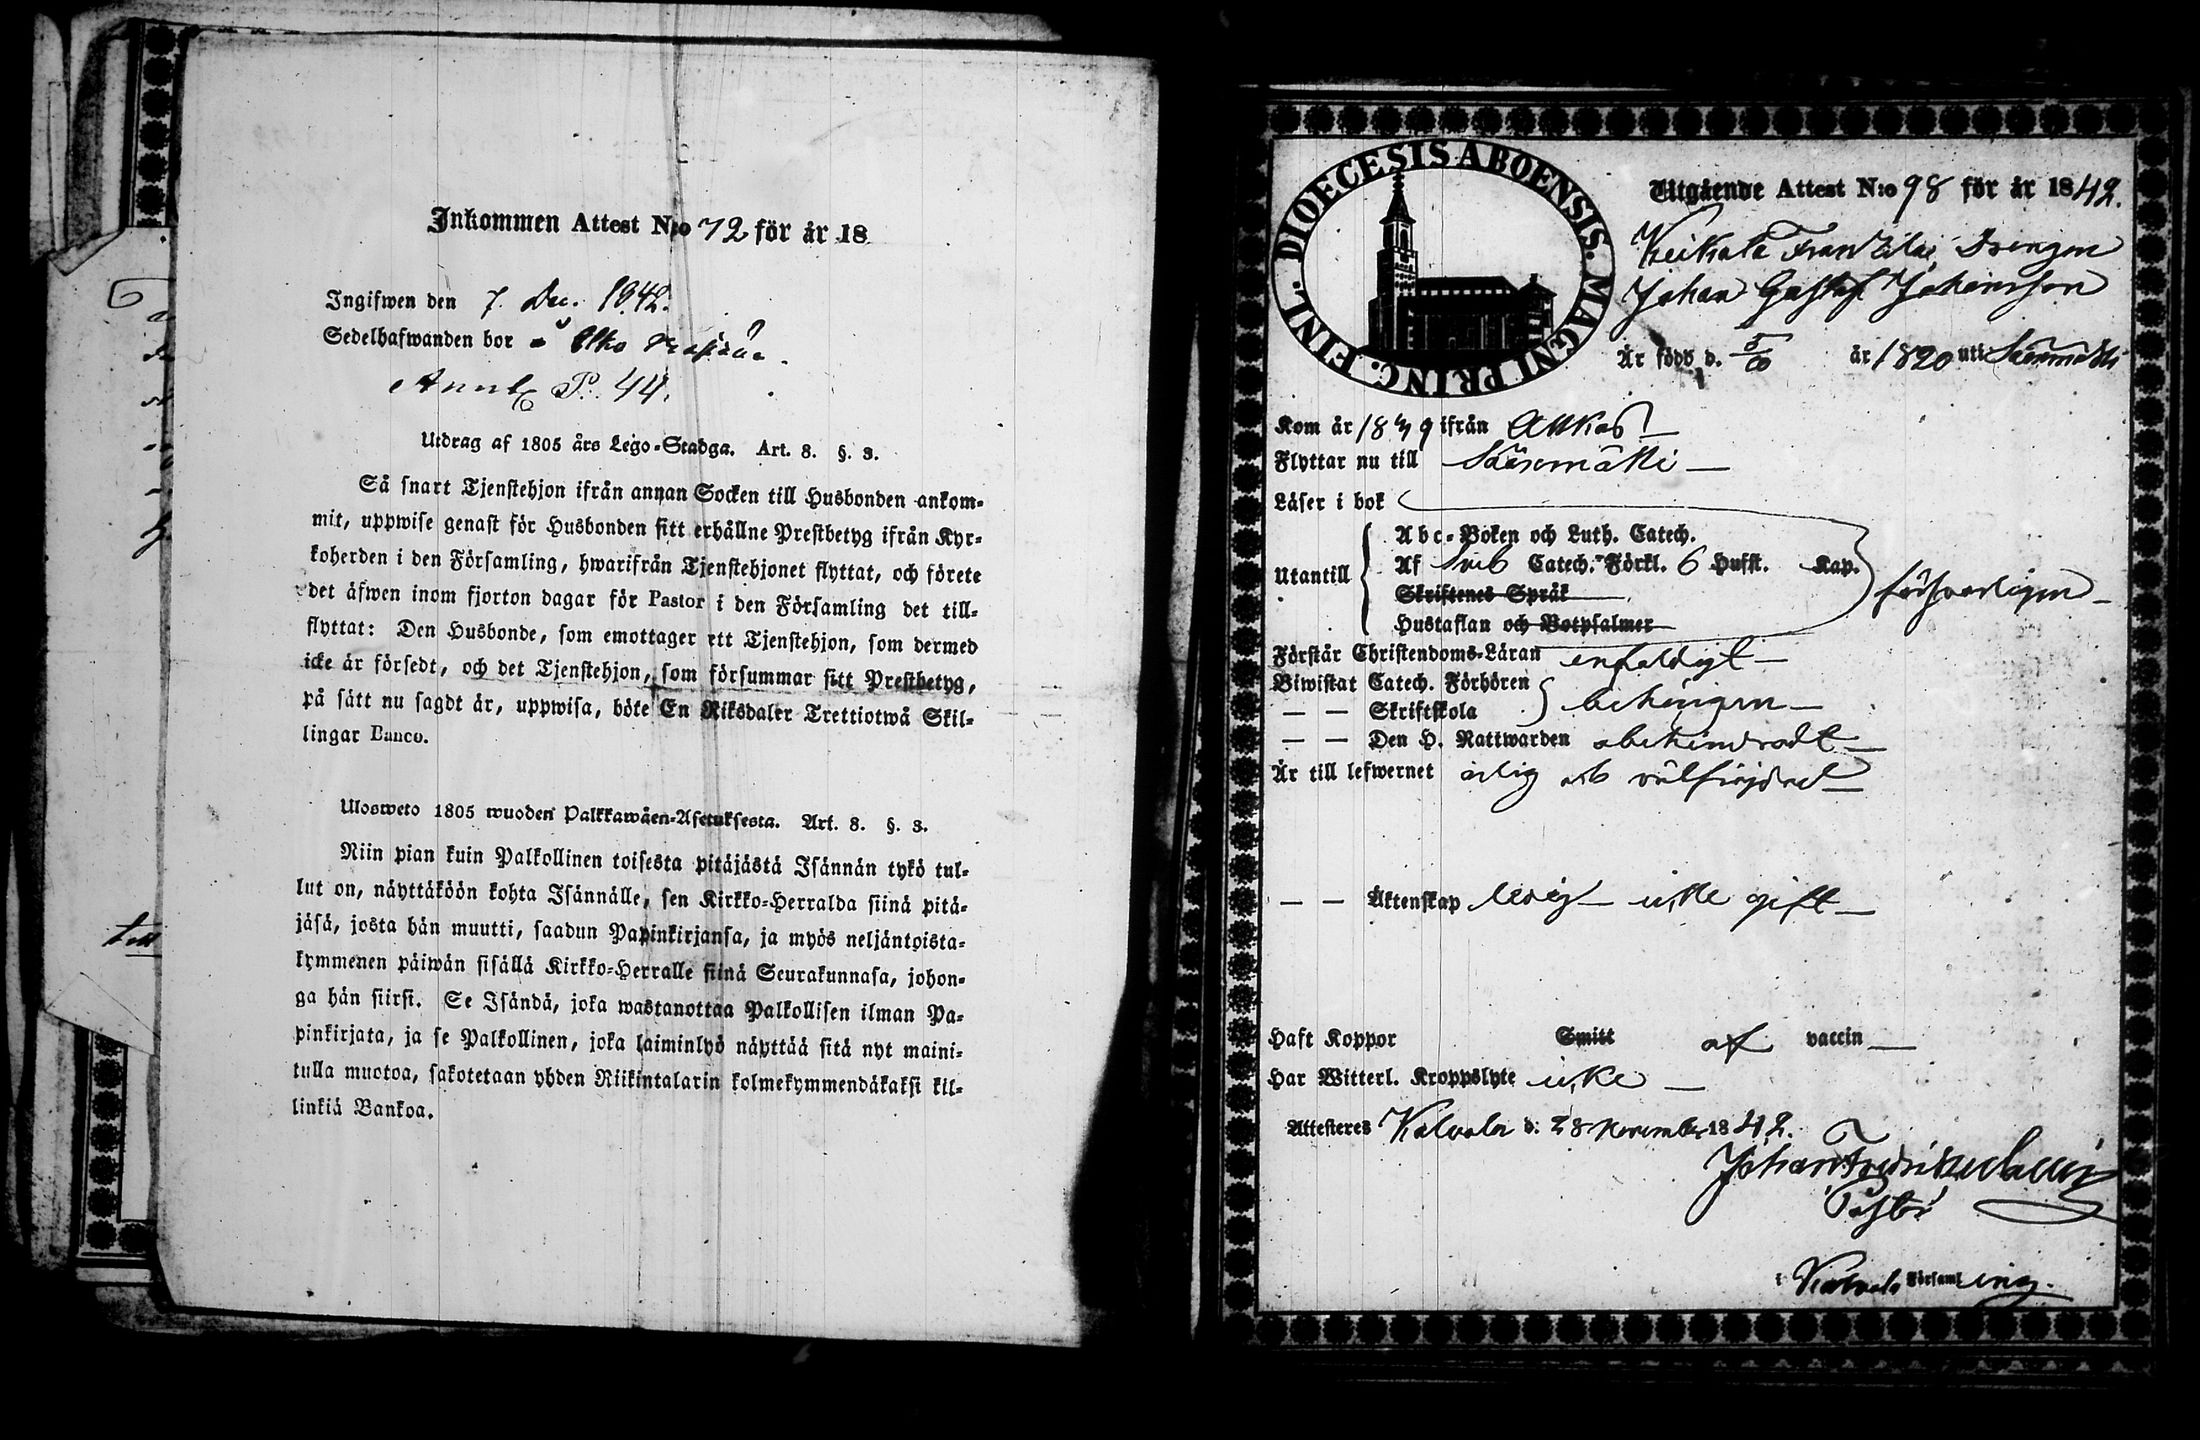 Inkommen Attest N:o 72 för år 18
Ingifwen den 7. Dec. 1842.
Sedelhafwanden bor
Annb. P. 44.
Utdrag af 1805 års Lego-Stadga. Art. 8. §. 3.
Så snart Tjenstehjon ifrån annan Socken till Husbonden ankom-
mit, uppwise genast för Husbonden sitt erhållne Prestbetyg ifrån Kyr-
koherden i den Församling, hwarifrån Tjenstehjonet flyttat, och förete
det äfwen inom fjorton dagar för Pastor i den Församling det till-
flyttat: Den Husbonde, som emottager ett Tjenstehjon, som dermed
icke är försedt, och det Tjenstehjon, som försummar sitt Prestbetyg,
på sätt nu sagdt är, uppwisa, böte En Riksdaler Trettiotwå Skil-
lingar Banco.
Ulosweto 1805 wuoden Palkkawäen-Asetuksesta. Art. 8. §. 3.
Niin pian kuin Palkollinen toisesta pitäjästä Isännän tykö tul-
lut on, näyttäköön kohta Isännälle, sen Kirkko-Herralda siinä pitä-
jäsä, josta hän muutti, saadun Papinkirjansa, ja myös neljäntoista-
kymmenen päiwän sisällä Kirkko-Herralle siinä Seurakunnasa, johon-
ga hän siirsi. Se Isändä, joka wastanottaa Palkollisen ilman Pa-
pinkirjata, ja se Palkollinen, joka laiminlyö näyttää sitä nyt maini-
tulla muotoa, sakotetaan yhden Riikintalarin kolmekymmendäkaksi kil-
linkiä Bankoa.
DIOECESIS ABOENSIS. MAGNI PRINC. FINL.
Utgående Attest N:o 98 för år 1842.
Keikala Franzilai Drengen
Johan Gustaf Johansson
Är född d. 5/8 år 1820 uti Sääxmäki
Kom år 1839 ifrån Akkas
Flyttar nu till Sääxmäki
Läser i bok
Utantill
Abc-Boken och Luth. Catech.
Af Sveb Catech. Förkl. 6 Hufst. Kap.
Skriftenes Språk
Hustaflan och Botpsalmer
försvarligen
Förstår Christendoms-Läran enfaldigt
Biwistat Catech. Förhören
— — Skriftskola
behörigen
— — Den H. Nattwarden obehindradt
Är till lefwernet ärlig och välfrejdad
— — Äktenskap ledig icke gift
Haft Koppor Smitt af vaccin
Har Witterl. Kroppslyte icke
Attesteres Kalvola d. 28 November 1842.
Pastor
i Kalvola Församling.